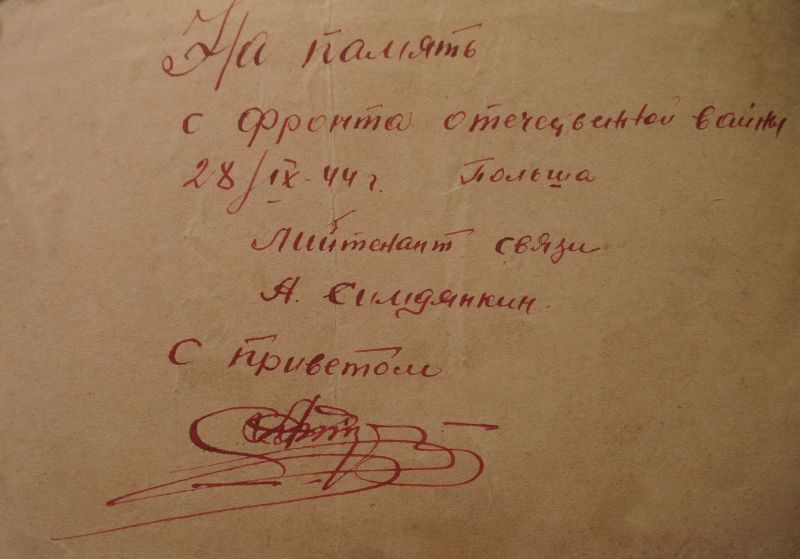 На память
с фронта отечественной вайны
28/IX-44 г. Польша
Лийтенант связи
А. Симдянкин.
С приветом